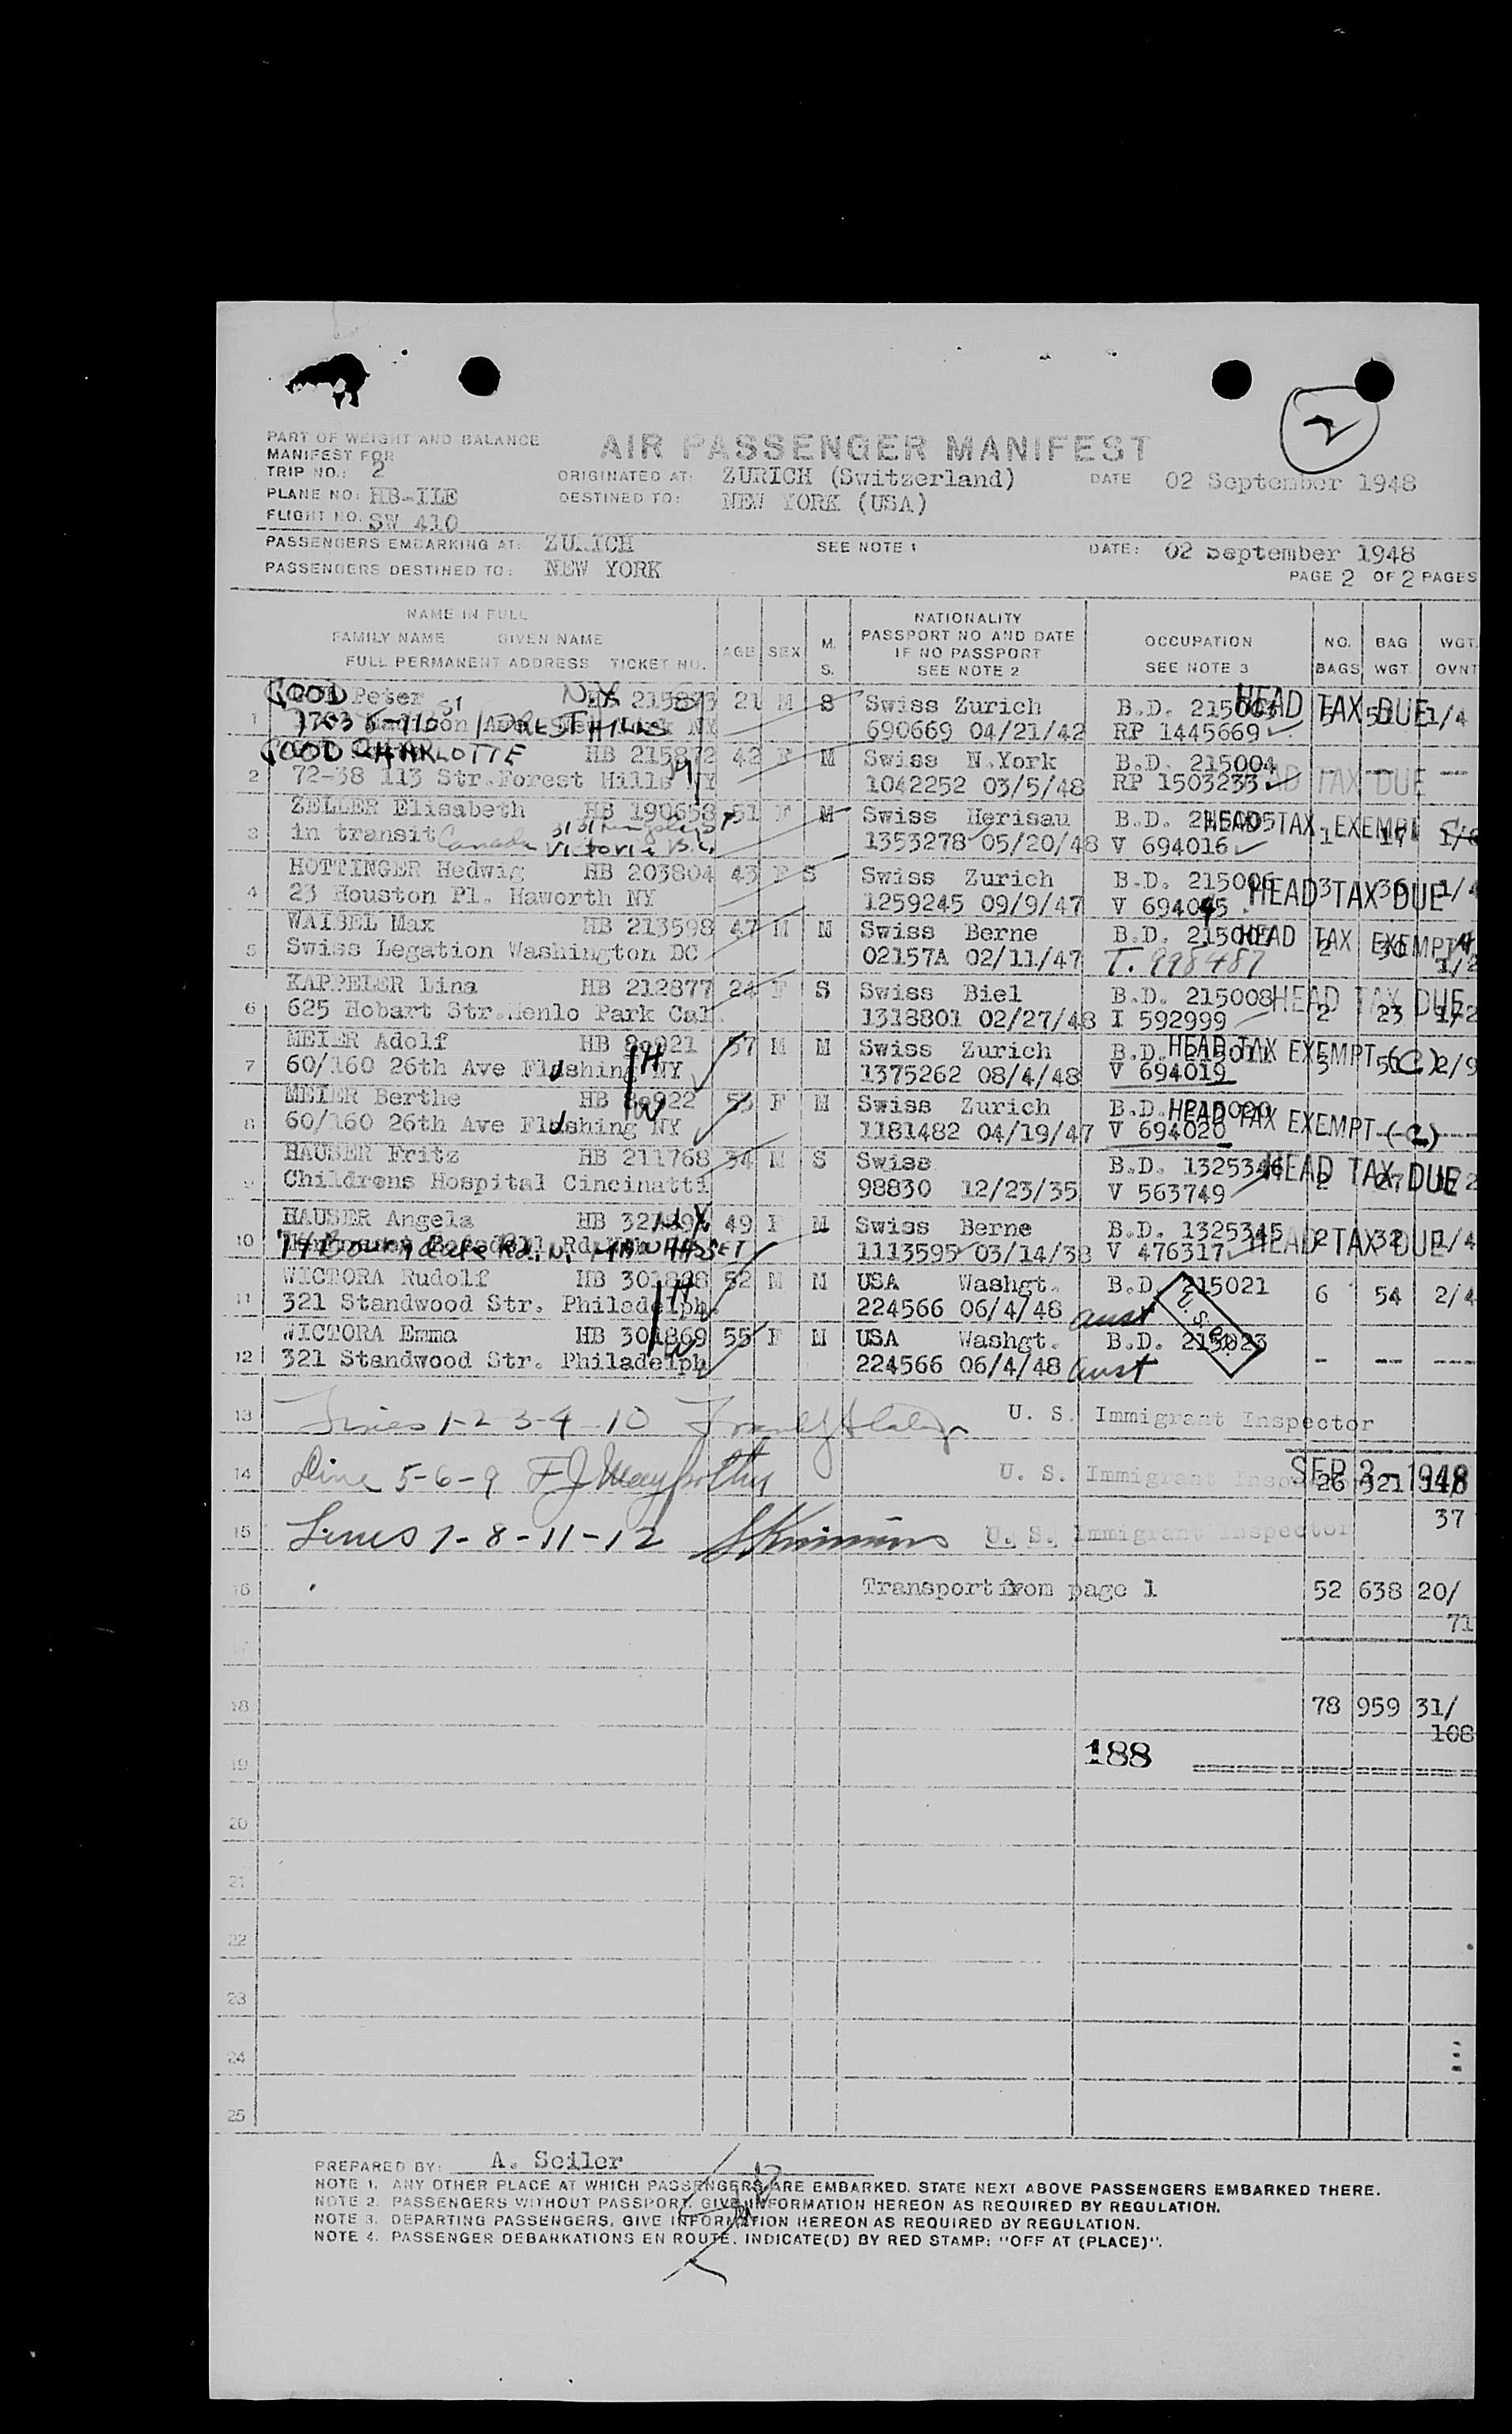 2
PART OF WEIGHT AND BALANCE
MANIFEST FOR
TRIP NO.: 2
PLANE NO: HB-ILE
FLIGHT NO. SW 410
AIR PASSENGER MANIFEST
ORIGINATED AT: ZURICH (Switzerland) DATE 02 September 1948
DESTINED TO: NEW YORK (USA)
PASSENGERS EMBARKING AT: ZURICH SEE NOTE 1 DATE: 02 September 1948
PASSENGERS DESTINED TO: NEW YORK
PAGE 2 OF 2 PAGES
NAME IN FULL
FAMILY NAME GIVEN NAME
FULL PERMANENT ADDRESS TICKET NO.
AGE SEX M. S.
NATIONALITY
PASSPORT NO AND DATE
IF NO PASSPORT
SEE NOTE 2
OCCUPATION
SEE NOTE 3
NO. BAGS
BAG WGT.
WGT. OVNT
GOOD Peter N.Y. HB 215873 21 M S Swiss Zurich B.D. HEAD TAX DUE
1 FOREST HILLS NY 690669 04/21/42 RP 1445669 1/4
GOOD CHARLOTTE HB 215872 42 F M Swiss N.York B.D. 215004
2 72-38 113 Str.Forest Hills NY 1042252 03/5/48 RP 1503233 HEAD TAX DUE
ZELLER Elisabeth HB 190658 51 F M Swiss Herisau B.D. 215005 HEAD TAX EXEMPT
3 in transit Canada Victoria B.C. 1353278 05/20/48 V 694016 1 17
HOTTINGER Hedwig HB 203804 43 F S Swiss Zurich B.D. 215006 HEAD TAX DUE
4 23 Houston Pl. Haworth NY 1259245 09/9/47 V 3 36 1/4
WAIBEL Max HB 213598 47 M M Swiss Berne B.D. 215007 HEAD TAX EXEMPT
5 Swiss Legation Washington DC 02157A 02/11/47 T. 998487 2 30 1/2
KAPPELER Lina HB 212877 24 F S Swiss Biel B.D. 215008 HEAD TAX DUE
6 625 Hobart Str.Menlo Park Cal. 1318801 02/27/48 I 592999 2 23 1/2
MEIER Adolf HB 80921 57 M M Swiss Zurich B.D. HEAD TAX EXEMPT (C)
7 60/160 26th Ave Flushing NY 1/H 1375262 08/4/48 V 694019 5 56 2/9
MEIER Berthe HB 80922 53 F M Swiss Zurich B.D. HEAD TAX EXEMPT (C)
8 60/160 26th Ave Flushing NY 1/W 1181482 04/19/47 V 694020
HAUSER Fritz HB 211768 34 M S Swiss B.D. 1325346 HEAD TAX DUE
9 Childrens Hospital Cincinatti 98830 12/23/35 V 563749 2 27 1/2
HAUSER Angela HB N.Y. 49 F M Swiss Berne B.D. 1325345 HEAD TAX DUE
10 Rd. N. MANHASSET 1113595 03/14/38 V 476317 2 32 1/4
WICTORA Rudolf HB 301868 52 M M USA Washgt. B.D. 215021
11 321 Standwood Str. Philadelph. 1/H 224566 06/4/48 aust U.S.C. 6 54 2/4
WICTORA Emma HB 301869 55 F M USA Washgt. B.D. 215023
12 321 Standwood Str. Philadelph 1/W 224566 06/4/48 aust - -- ---
13 Lines 1-2 3-4-10 U. S. Immigrant Inspector
14 Line 5-6-9 U. S. Immigrant Inspector SEP 2 - 1948
26 321 11/
37
15 Lines 7-8-11-12 U. S. Immigrant Inspector
16 Transport from page 1 52 638 20/
71
17
18 78 959 31/
108
19 188
20
21
22
23
24
25
PREPARED BY: A. Seiler
NOTE 1. ANY OTHER PLACE AT WHICH PASSENGERS ARE EMBARKED. STATE NEXT ABOVE PASSENGERS EMBARKED THERE.
NOTE 2. PASSENGERS WITHOUT PASSPORT. GIVE INFORMATION HEREON AS REQUIRED BY REGULATION.
NOTE 3. DEPARTING PASSENGERS. GIVE INFORMATION HEREON AS REQUIRED BY REGULATION.
NOTE 4. PASSENGER DEBARKATIONS EN ROUTE. INDICATE(D) BY RED STAMP: "OFF AT (PLACE)".